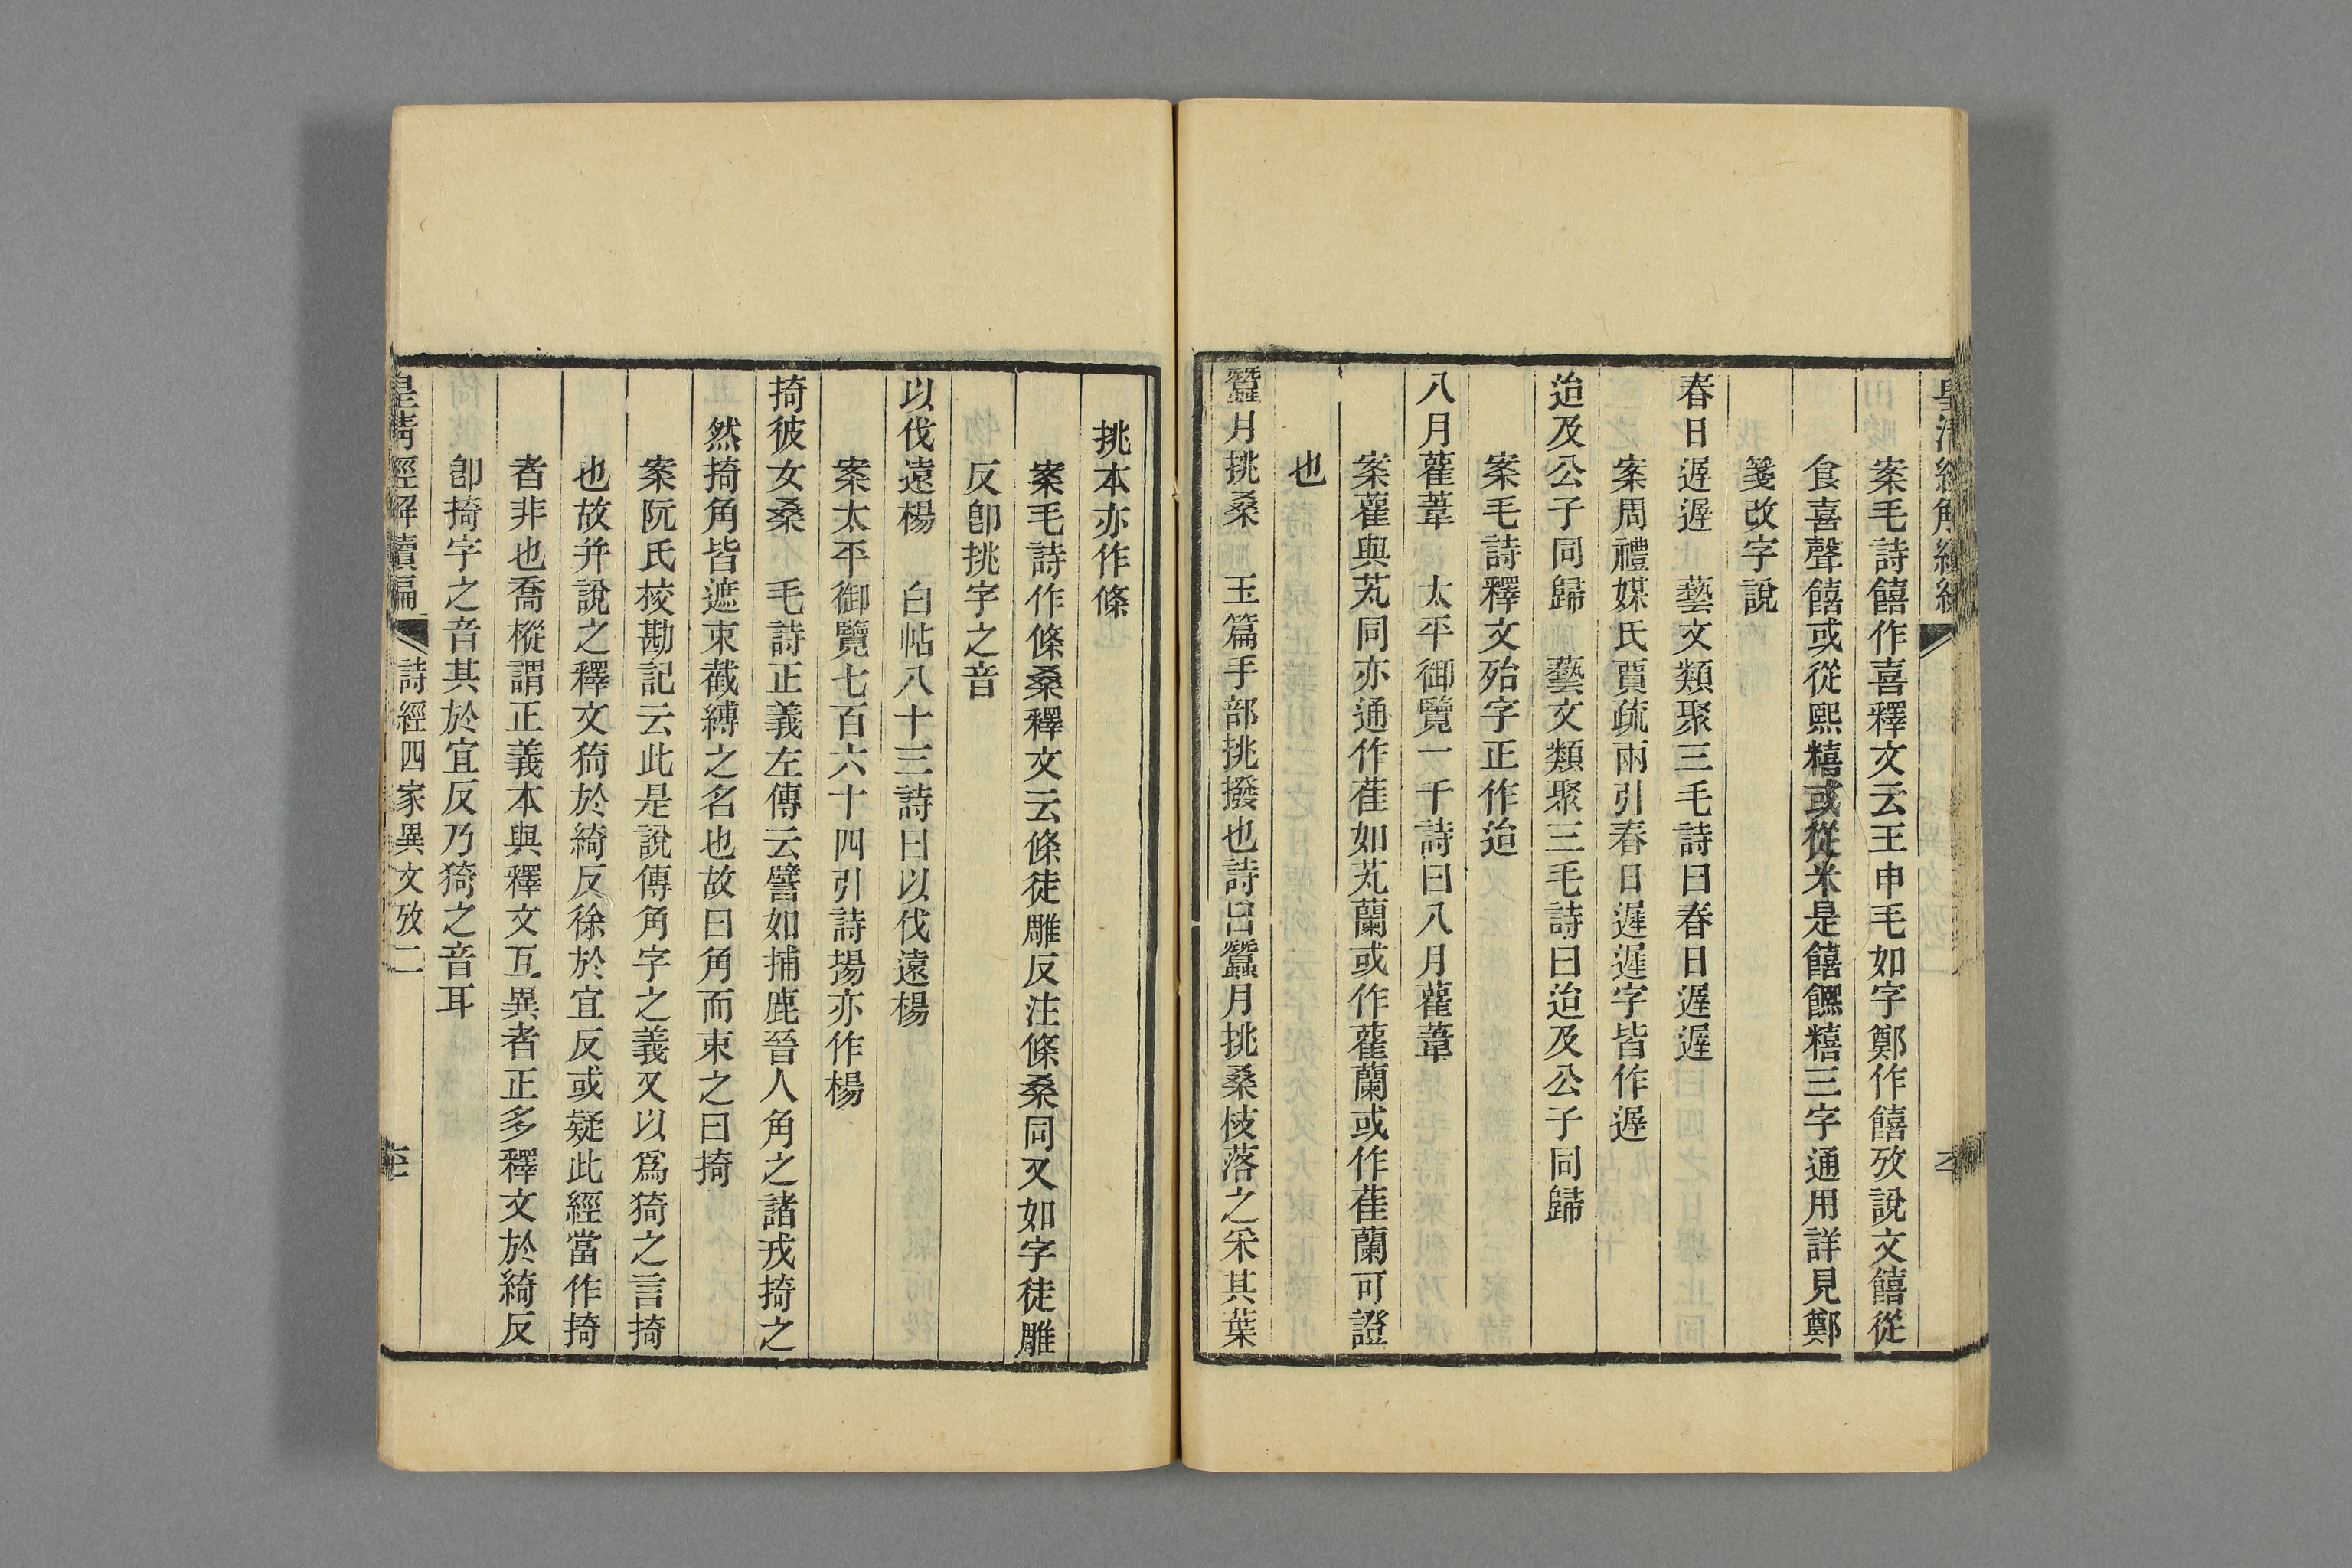 案毛詩饎作喜釋文云王申毛如字鄭作饎攷說文饎從
食喜聲饎或從熙糦或從米是饎𩟄糦三字通用詳見鄭
箋改字說
春日遟遟　藝文類聚三毛詩曰春日遟遟
案周禮媒氏賈疏兩引春日遟遟字皆作遟
迨及公子同歸　藝文類聚三毛詩曰迨及公子同歸
案毛詩釋文殆字正作迨
八月雚葦　太平御覽一千詩曰八月雚葦
案雚與芄同亦通作萑如芄蘭或作雚蘭或作萑蘭可證
也
蠶月挑桑　玉篇手部挑撥也詩曰蠶月挑桑枝落之采其葉
挑本亦作條
案毛詩作條桑釋文云條徒雕反注條桑同又如字徒雕
反卽挑字之音
以伐遠楊　白帖八十三詩曰以伐遠楊
案太平御覽七百六十四引詩揚亦作楊
掎彼女桑　毛詩正義左傳云譬如捕鹿晉人角之諸戎掎之
然掎角皆遮束截縛之名也故曰角而束之曰掎
案阮氏挍勘記云此是說傳角字之義又以爲猗之言掎
也故并說之釋文猗於綺反徐於宜反或疑此經當作掎
者非也喬樅謂正義本與釋文互異者正多釋文於綺反
卽掎字之音其於宜反乃猗之音耳
皇淸經解續編　詩經四家異文攷二